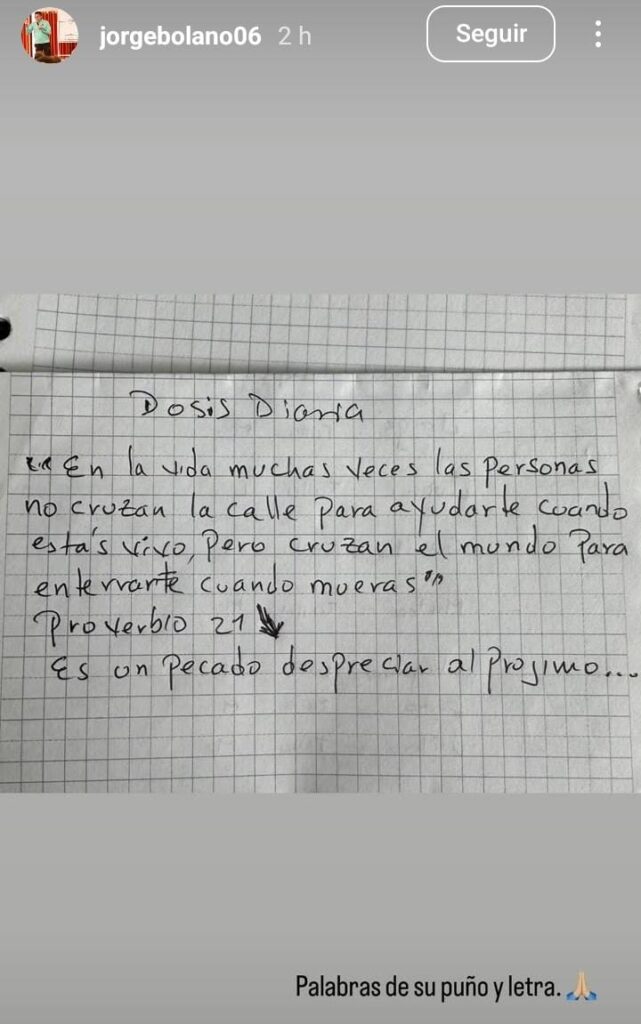 jorgebolano06 2 h Seguir
Dosis Diaria
"En la vida muchas veces las personas
no cruzan la calle para ayudarte cuando
esta's vivo, pero cruzan el mundo para
enterrarte cuando mueras"
Proverbio 21
Es un pecado despreciar al projimo...
Palabras de su puño y letra. 🙏🏼